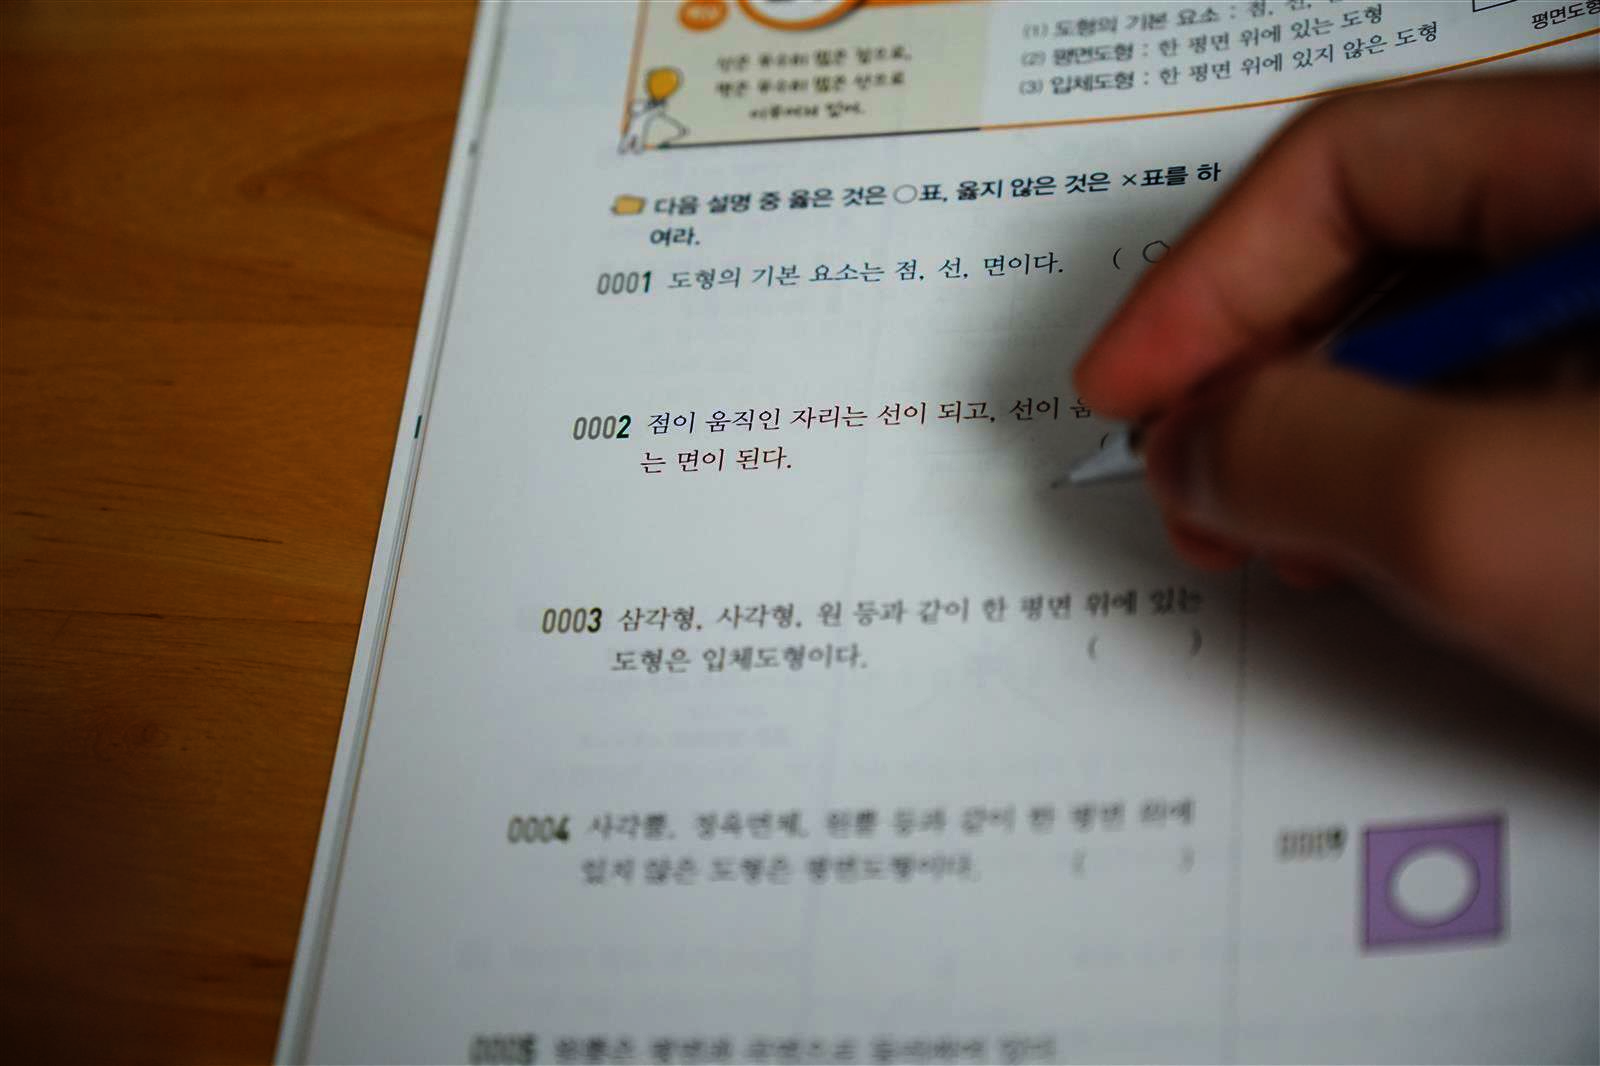 선은 무수히 많은 점으로,
면은 무수히 많은 선으로
이루어져 있어.
(1) 도형의 기본 요소 : 점, 선,
(2) 평면도형 : 한 평면 위에 있는 도형
(3) 입체도형 : 한 평면 위에 있지 않은 도형
평면도형
다음 설명 중 옳은 것은 ○표, 옳지 않은 것은 ×표를 하
여라.
0001 도형의 기본 요소는 점, 선, 면이다. ( ○
0002 점이 움직인 자리는 선이 되고, 선이 움
는 면이 된다. (
0003 삼각형, 사각형, 원 등과 같이 한 평면 위에 있는
도형은 입체도형이다. ( )
0004 사각뿔, 정육면체, 원뿔 등과 같이 한 평면 위에
있지 않은 도형은 평면도형이다. ( )
0005 원뿔은 평면과 곡면으로 둘러싸여 있다